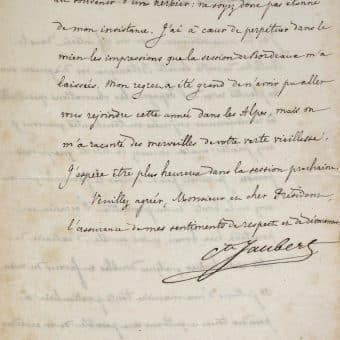 au souvenir d'un herbier: ne soyez donc pas étonné
de mon insistance. J'ai à cœur de perpétuer dans le
mien les impressions que la session de Bordeaux m'a
laissées. Mon regret a été grand de n'avoir pu aller
vous rejoindre cette année dans les Alpes, mais on
m'a raconté des merveilles de votre verte vieillesse:
J'espère être plus heureux dans la session prochaine.
Veuillez agréer, Monsieur et cher Président,
l'assurance de mes sentiments de respect et de dévouement.
Cte Jaubert